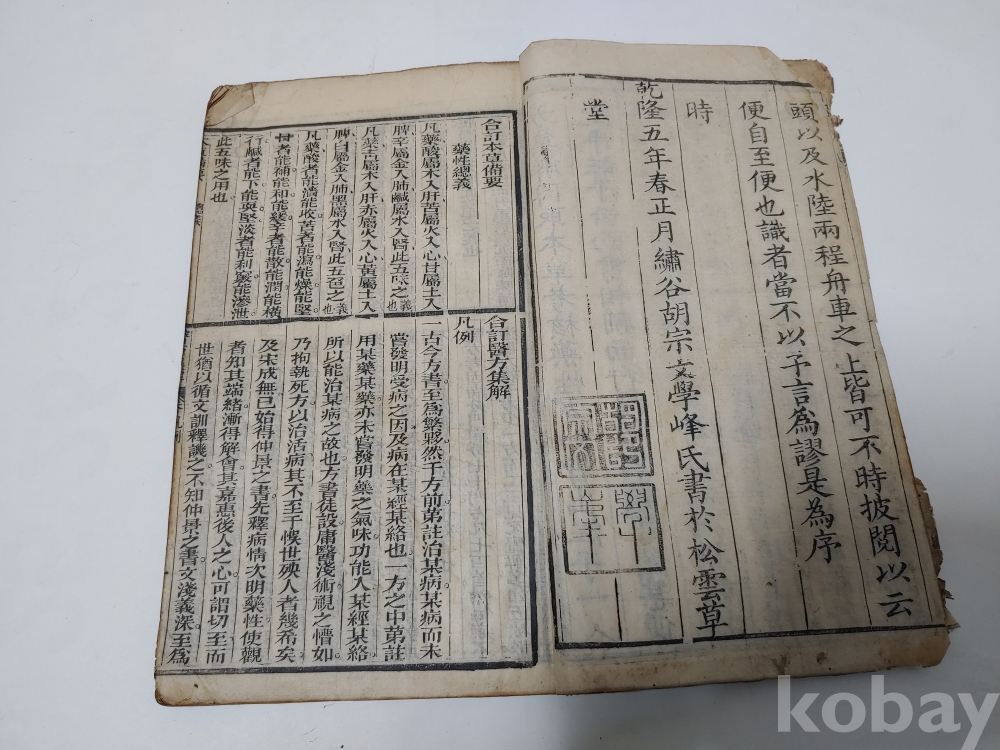 頭以及水陸兩程舟車之上皆可不時披閱以云
便自至便也識者當不以予言為謬是為序
時
乾隆五年春正月繡谷胡宗文學峰氏書於松雲草
堂
學峯
合訂本草備要
藥性總義
凡藥酸屬木入肝苦屬火入心甘屬土入
脾辛屬金入肺鹹屬水入腎此五味之義也
凡藥青屬木入肝赤屬火入心黃屬土入
脾白屬金入肺黑屬水入腎此五色之義也
凡藥酸者能濇能收苦者能瀉能燥能堅
甘者能補能和能緩辛者能散能潤能橫
行鹹者能下能耎堅淡者能利竅能滲泄
此五味之用也
合訂醫方集解
凡例
一古今方書至為繁夥然于方前第註治某病某病而未
嘗發明受病之因及病在某經某絡也一方之中第註
用某藥某藥亦未嘗發明藥之氣味功能入某經某絡
所以能治某病之故也方書徒設庸醫淺術視之懵如
乃拘執死方以治活病其不至于悞世殃人者幾希矣
及宋成無己始得仲景之書先釋病情次明藥性使觀
者知其端緒漸得解會其嘉惠後人之心可謂切至而
世猶以循文訓釋譏之不知仲景之書文淺義深至為
kobay